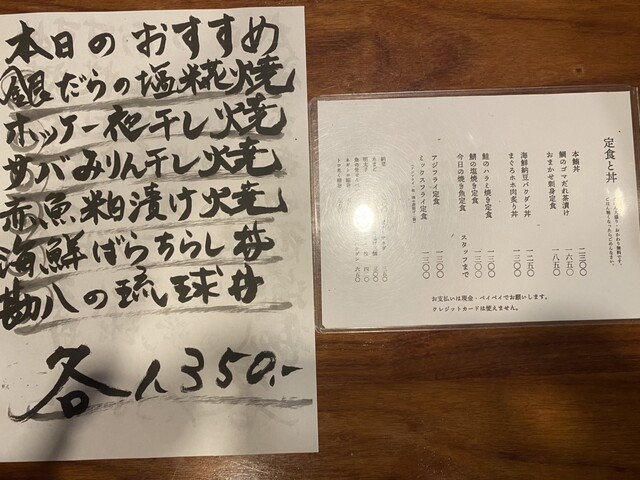 本日のおすすめ
銀だらの塩糀焼
ホッケ一夜干し焼
サバみりん干し焼
赤魚粕漬け焼
海鮮ばらちらし丼
勘八の琉球丼
各1,350.-
定食と丼
本鮪丼 二三〇〇
鯛のゴマだれ茶漬け 一六五〇
おまかせ刺身定食 一八五〇
海鮮納豆バクダン丼 一二五〇
まぐろホホ肉炙り丼 一三〇〇
鮭のハラミ焼き定食 一三〇〇
鯖の塩焼き定食 一三〇〇
今日の焼き魚定食 スタッフまで
アジフライ定食 一三〇〇
ミックスフライ定食 一三〇〇
お支払いは現金・ペイペイでお願いします。
クレジットカードは使えません。